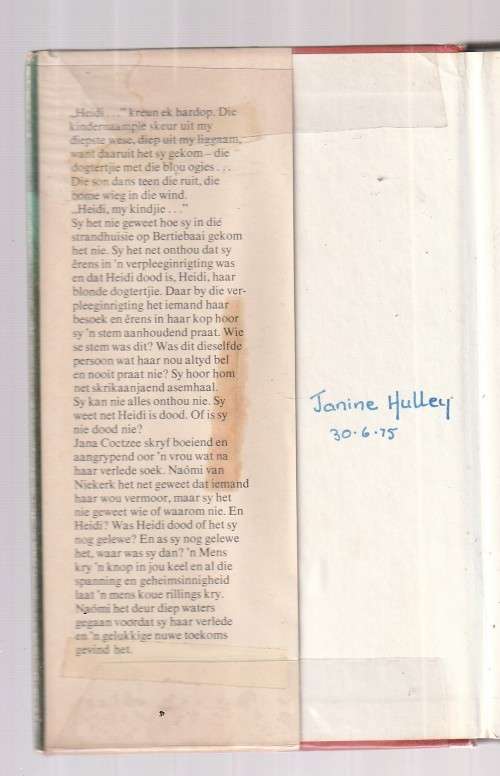 „Heidi . . .” kreun ek hardop. Die
kindernaampie skeur uit my
diepste wese, diep uit my liggaam,
want daaruit het sy gekom – die
dogtertjie met die blou ogies . . .
Die son dans teen die ruit, die
bome wieg in die wind.
„Heidi, my kindjie . . .”
Sy het nie geweet hoe sy in dié
strandhuisie op Bertiebaai gekom
het nie. Sy het net onthou dat sy
êrens in 'n verpleeginrigting was
en dat Heidi dood is, Heidi, haar
blonde dogtertjie. Daar by die ver-
pleeginrigting het iemand haar
besoek en êrens in haar kop hoor
sy 'n stem aanhoudend praat. Wie
se stem was dit? Was dit dieselfde
persoon wat haar nou altyd bel
en nooit praat nie? Sy hoor hom
net skrikaanjaend asemhaal.
Sy kan nie alles onthou nie. Sy
weet net Heidi is dood. Of is sy
nie dood nie?
Jana Coetzee skryf boeiend en
aangrypend oor 'n vrou wat na
haar verlede soek. Naómi van
Niekerk het net geweet dat iemand
haar wou vermoor, maar sy het
nie geweet wie of waarom nie. En
Heidi? Was Heidi dood of het sy
nog gelewe? En as sy nog gelewe
het, waar was sy dan? 'n Mens
kry 'n knop in jou keel en al die
spanning en geheimsinnigheid
laat 'n mens koue rillings kry.
Naómi het deur diep waters
gegaan voordat sy haar verlede
en 'n gelukkige nuwe toekoms
gevind het.
Janine Hulley
30·6·75